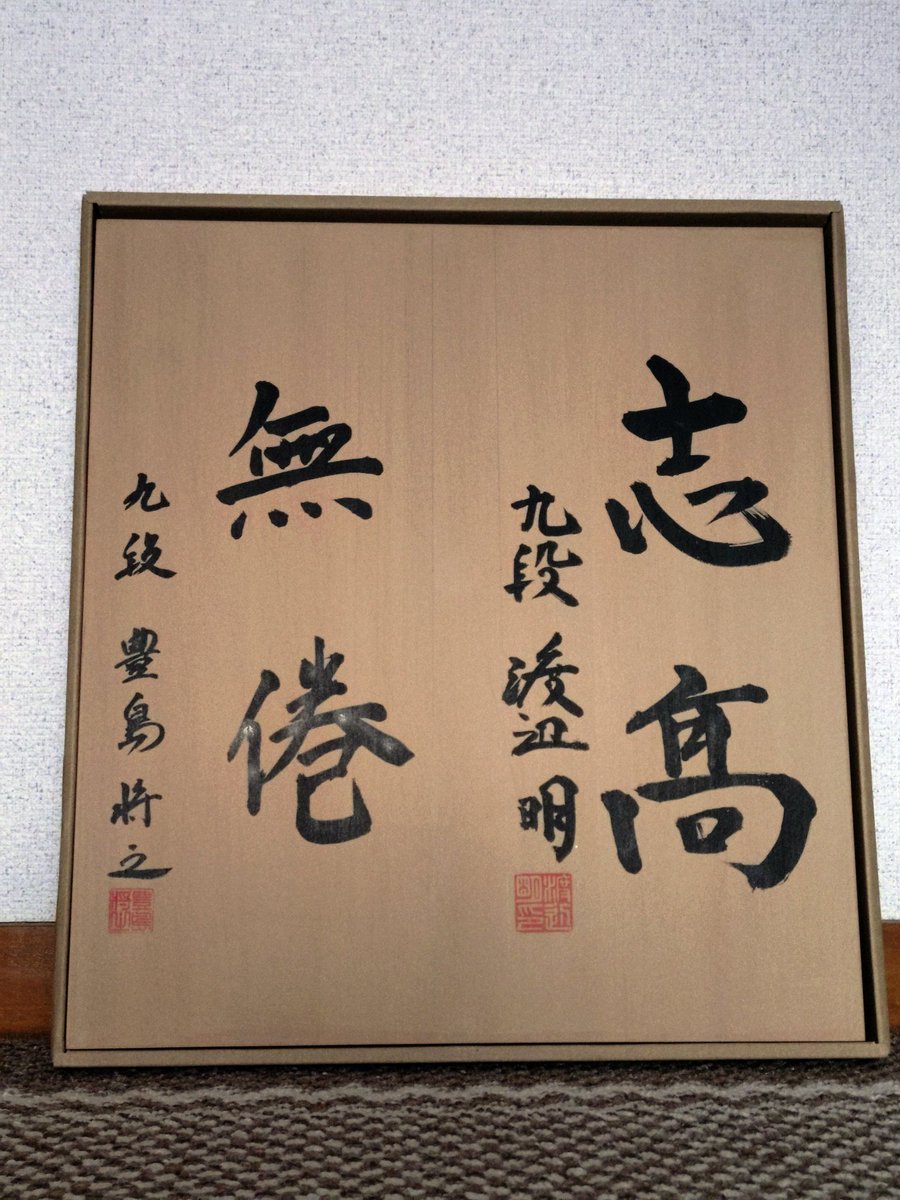 志高
九段 渡辺明
無倦
九段 豊島将之